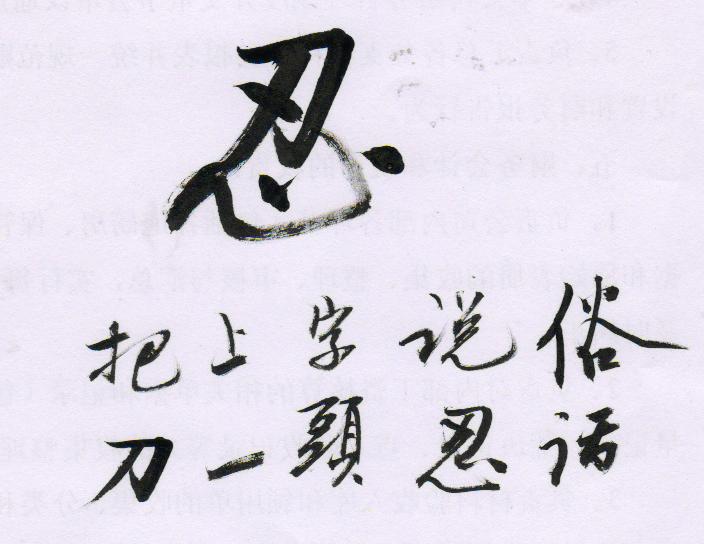 忍
俗话
说忍
字頭
上一
把刀